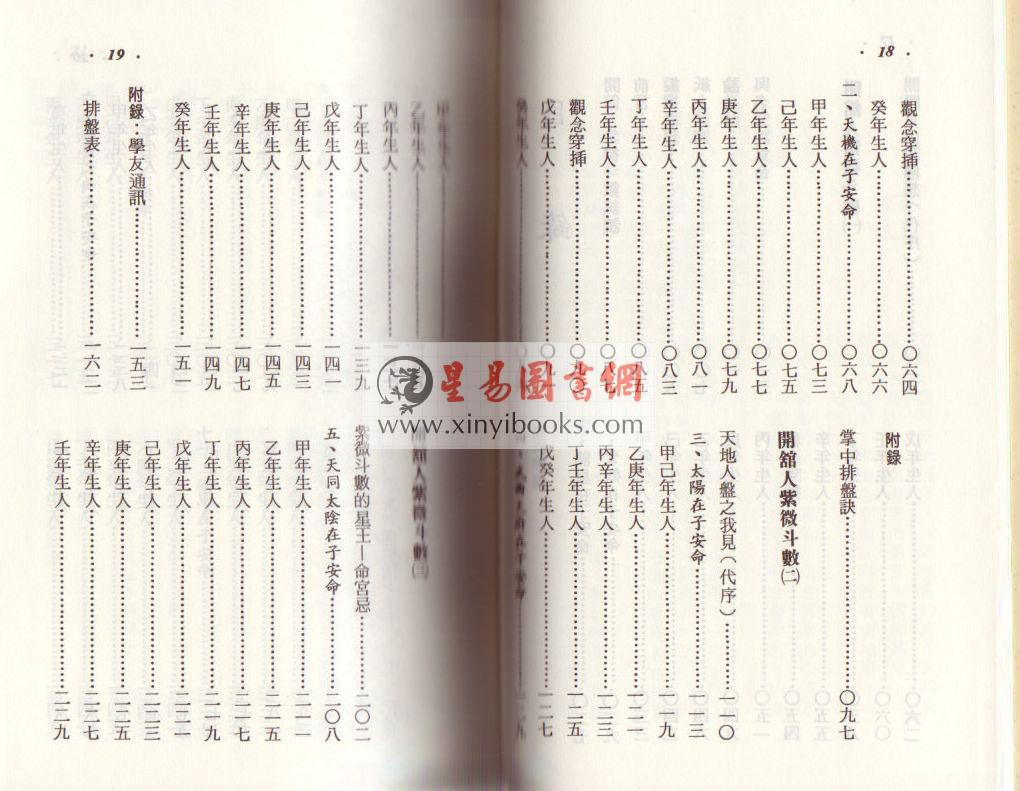 · 18 ·
觀念穿插……〇六四
癸年生人……〇六六
二、天機在子安命……〇六八
甲年生人……〇七三
己年生人……〇七五
乙年生人……〇七七
庚年生人……〇七九
丙年生人……〇八一
辛年生人……〇八三
丁年生人……〇八五
壬年生人……
觀念穿挿……
戊年生人……
癸年生人……
附錄
掌中排盤訣……〇九七
開舘人紫微斗數㈡
天地人盤之我見（代序）……一一〇
三、太陽在子安命……一一三
甲己年生人……一一九
乙庚年生人……一二一
丙辛年生人……一二三
丁壬年生人……一二五
戊癸年生人……一二七
武曲天府在子安命……
· 19 ·
甲年生人……
乙年生人……
丙年生人……
丁年生人……一三九
戊年生人……一四一
己年生人……一四三
庚年生人……一四五
辛年生人……一四七
壬年生人……一四九
癸年生人……一五一
附錄：學友通訊……一五三
排盤表……一六二
開舘人紫微斗數㈢
紫微斗數的星王—命宮忌……二〇二
五、天同太陰在子安命……二〇八
甲年生人……二一一
乙年生人……二一五
丙年生人……二一七
丁年生人……二一九
戊年生人……二二一
己年生人……二二三
庚年生人……二二五
辛年生人……二二七
壬年生人……二二九
星易圖書網
www.xinyibooks.com